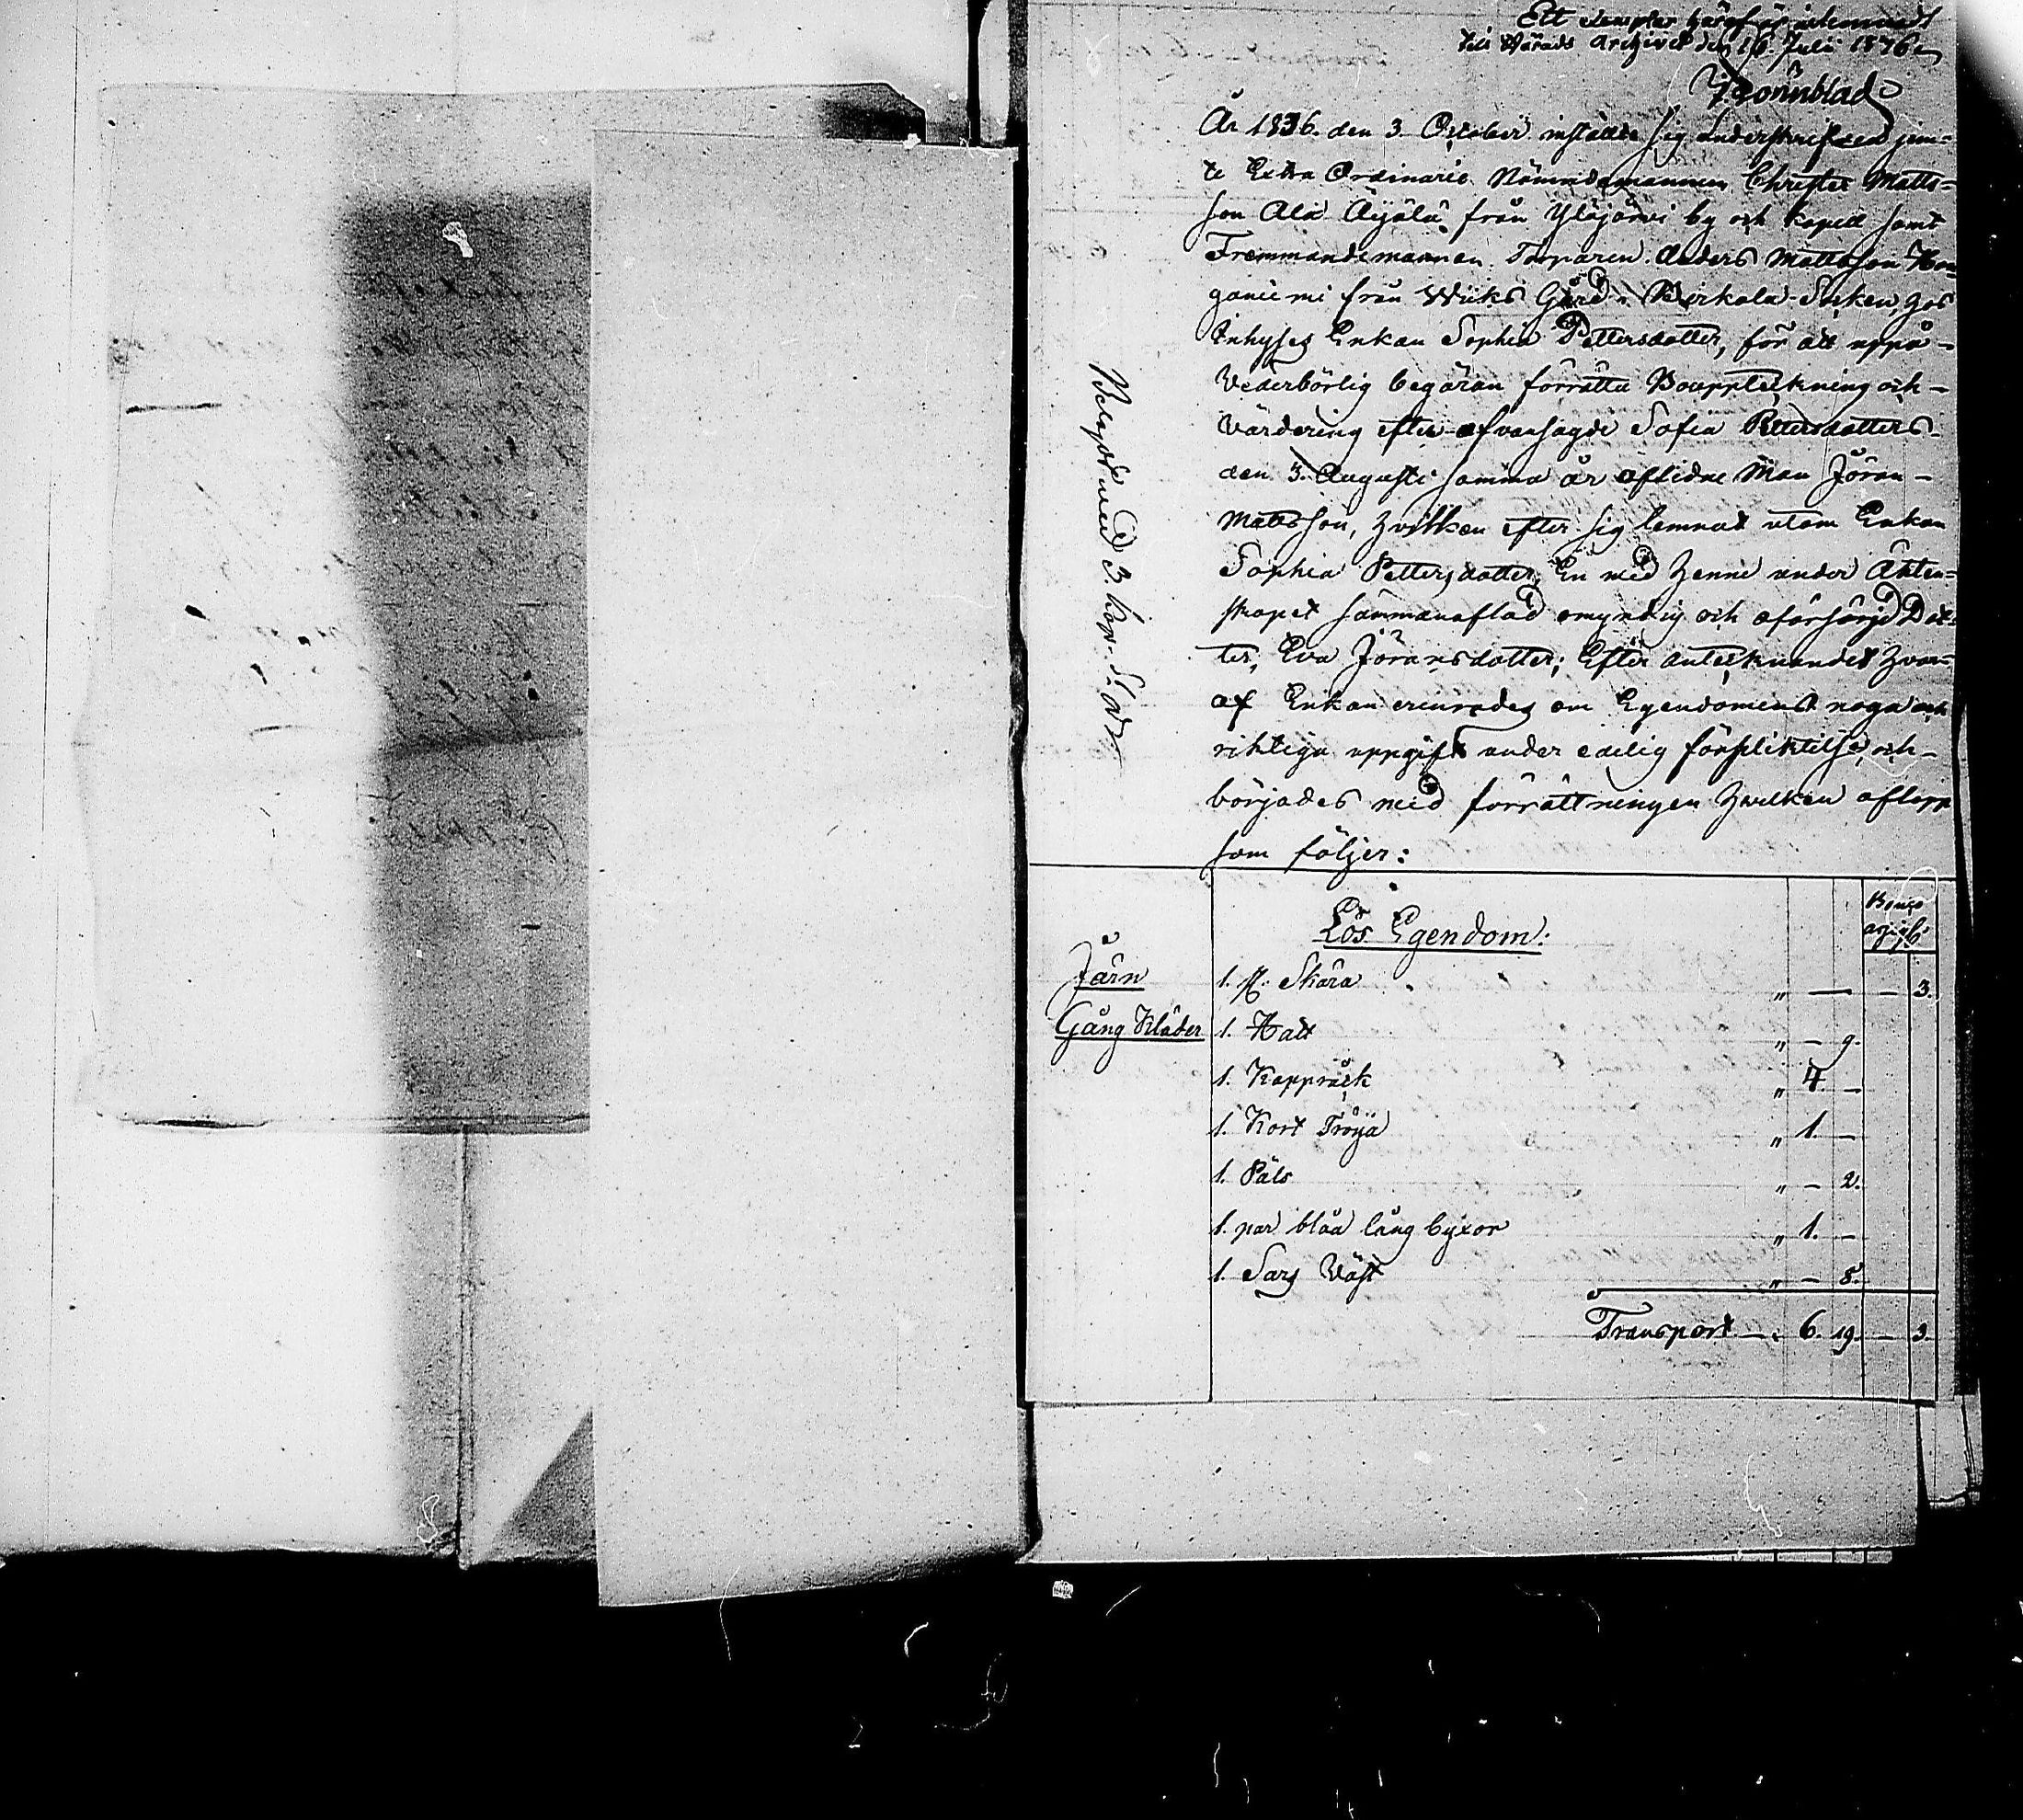 Ett exemplar häraf är inlemnadt
till Härads Archivet den 16 Julii 1876
Lönnblad
År 1836. den 3 October instälde sig underskrifven jem-
te Extra Ordinarie Nämndemannen Christer Matts-
son Ala Äijälä från Ylöjärvi by och Kapell samt
Fremmandemannen Torparen Anders Mattsson Han-
ganiemi från Wiiks Gård i Birkala Socken, hos
Inhyses Enkan Sophia Pettersdotter, för att uppå
Vederbörlig begäran förrätta Boupptekning och
Värdering efter ofvansagde Sofia Pettersdotters
den 3. Augusti samma år aflidne Man Jöran
Mattsson, hvilken efter sig lemnat utom Enkan
Sophia Pettersdotter, En med henne under Äkten-
skapet sammanaflad omyndig och oförsörjd Dot-
ter, Eva Jöransdotter; Efter antecknandet hvar-
af Enkan erinrades om Egendomens noga och
riktiga uppgift under edelig förpliktelse, och
börjades med förrättningen hvilken aflopp
som följer:
Belagd med 3. kop. S:
Lös Egendom:
Banco
Järn 1. st. Skära " — — 3.
Gång Kläder 1. Hatt " – 9.
1. Kappråck " 4 –
1. Kort Tröija " 1. –
1. Päls " – 2.
1. par blåa lång byxor " 1. –
1. Sars Väst " – 8.
Transport — " 6. 19. — 3.